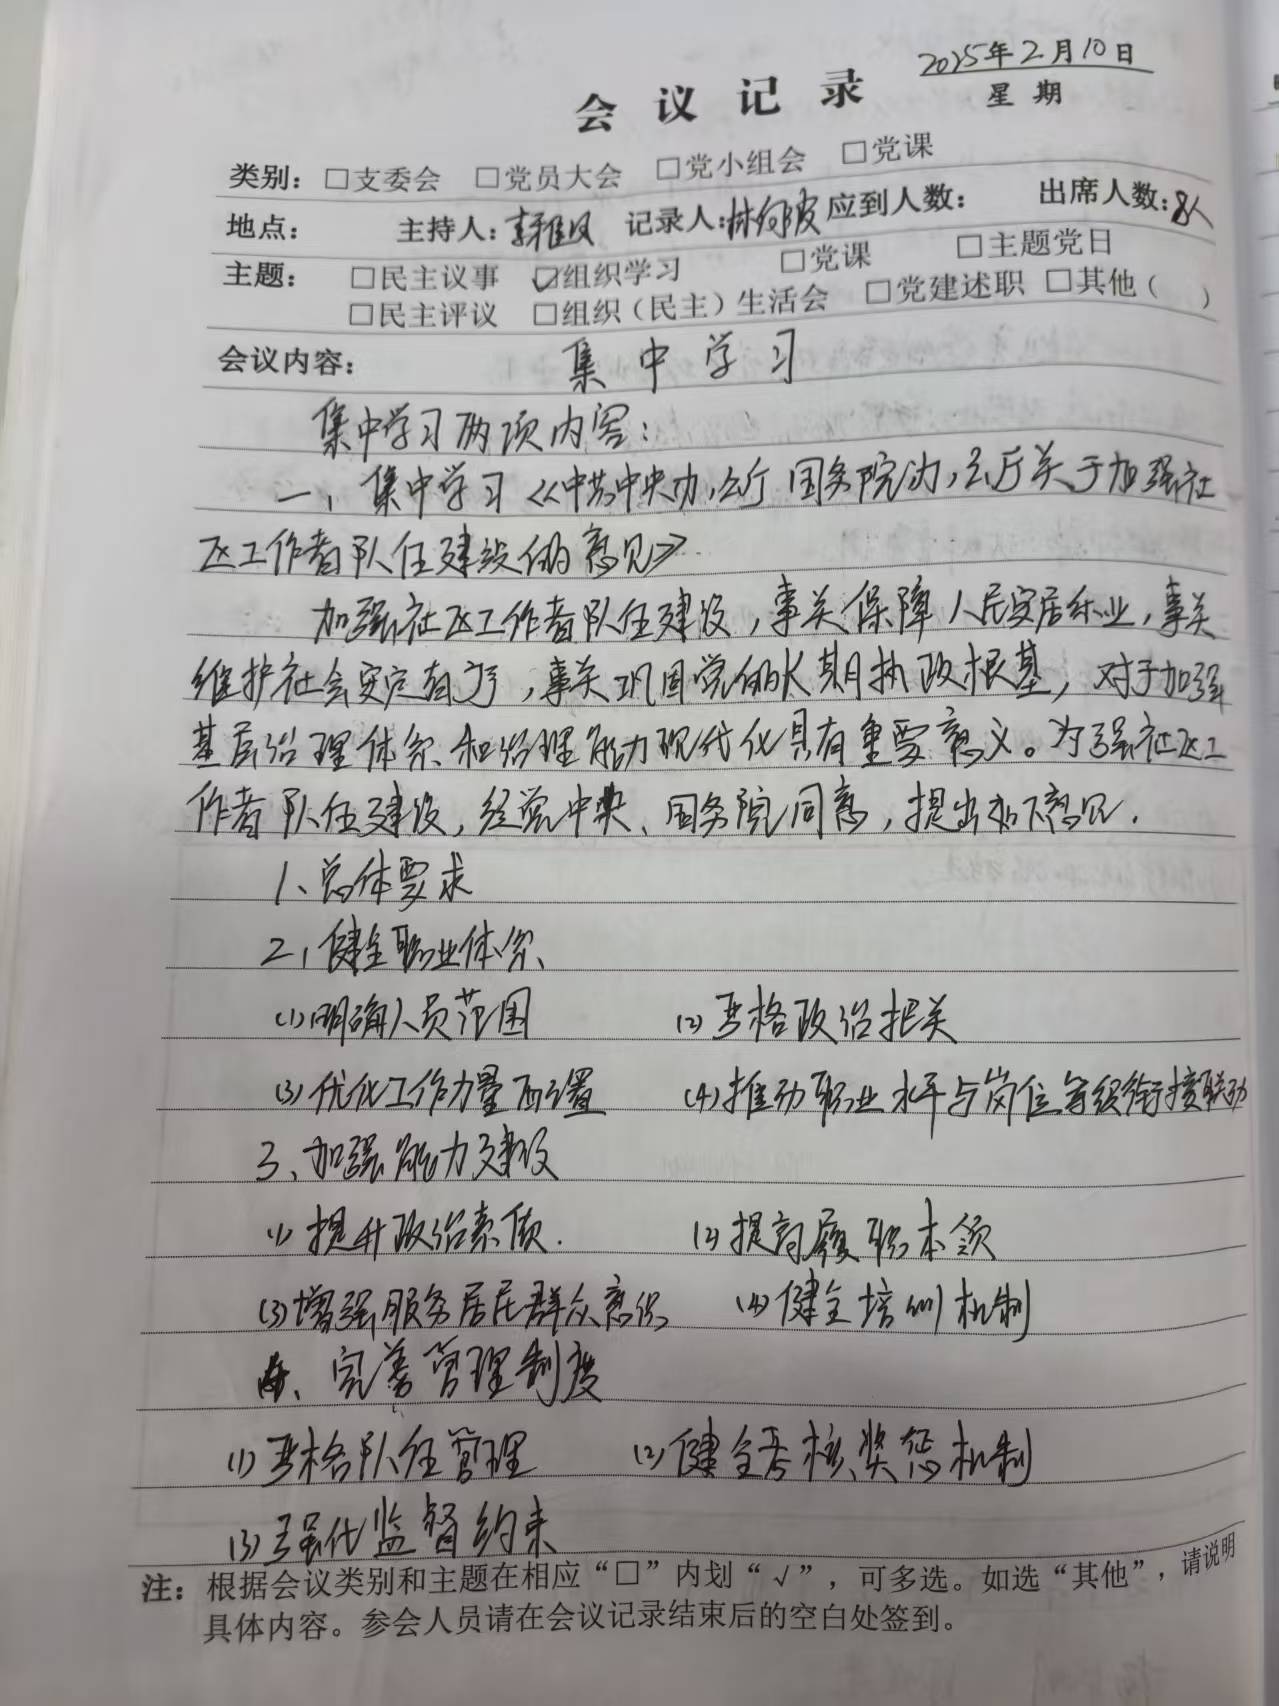 2025年2月10日
会议记录
星期
类别：□支委会 □党员大会 □党小组会 □党课
地点： 主持人： 记录人： 应到人数： 出席人数：8人
主题： □民主议事 ☑组织学习 □党课 □主题党日
□民主评议 □组织（民主）生活会 □党建述职 □其他（ ）
会议内容： 集中学习
集中学习两项内容：
一、集中学习《中共中央办公厅 国务院办公厅关于加强社
区工作者队伍建设的意见》
加强社区工作者队伍建设，事关保障人民安居乐业，事关
维护社会安定有序，事关巩固党的长期执政根基，对于加强
基层治理体系和治理能力现代化具有重要意义。为强社区工
作者队伍建设，经党中央、国务院同意，提出如下意见.
1、总体要求
2、健全职业体系、
(1)明确人员范围 (2)严格政治把关
(3)优化工作力量配置 (4)推动职业水平与岗位等级衔接联动
3、加强能力建设
(1)提升政治素质. (2)提高履职本领
(3)增强服务居民群众意识 (4)健全培训机制
、完善管理制度
(1)严格队伍管理 (2)健全考核奖惩机制
(3)强化监督约束
注：根据会议类别和主题在相应“□”内划“√”，可多选。如选“其他”，请说明
具体内容。参会人员请在会议记录结束后的空白处签到。